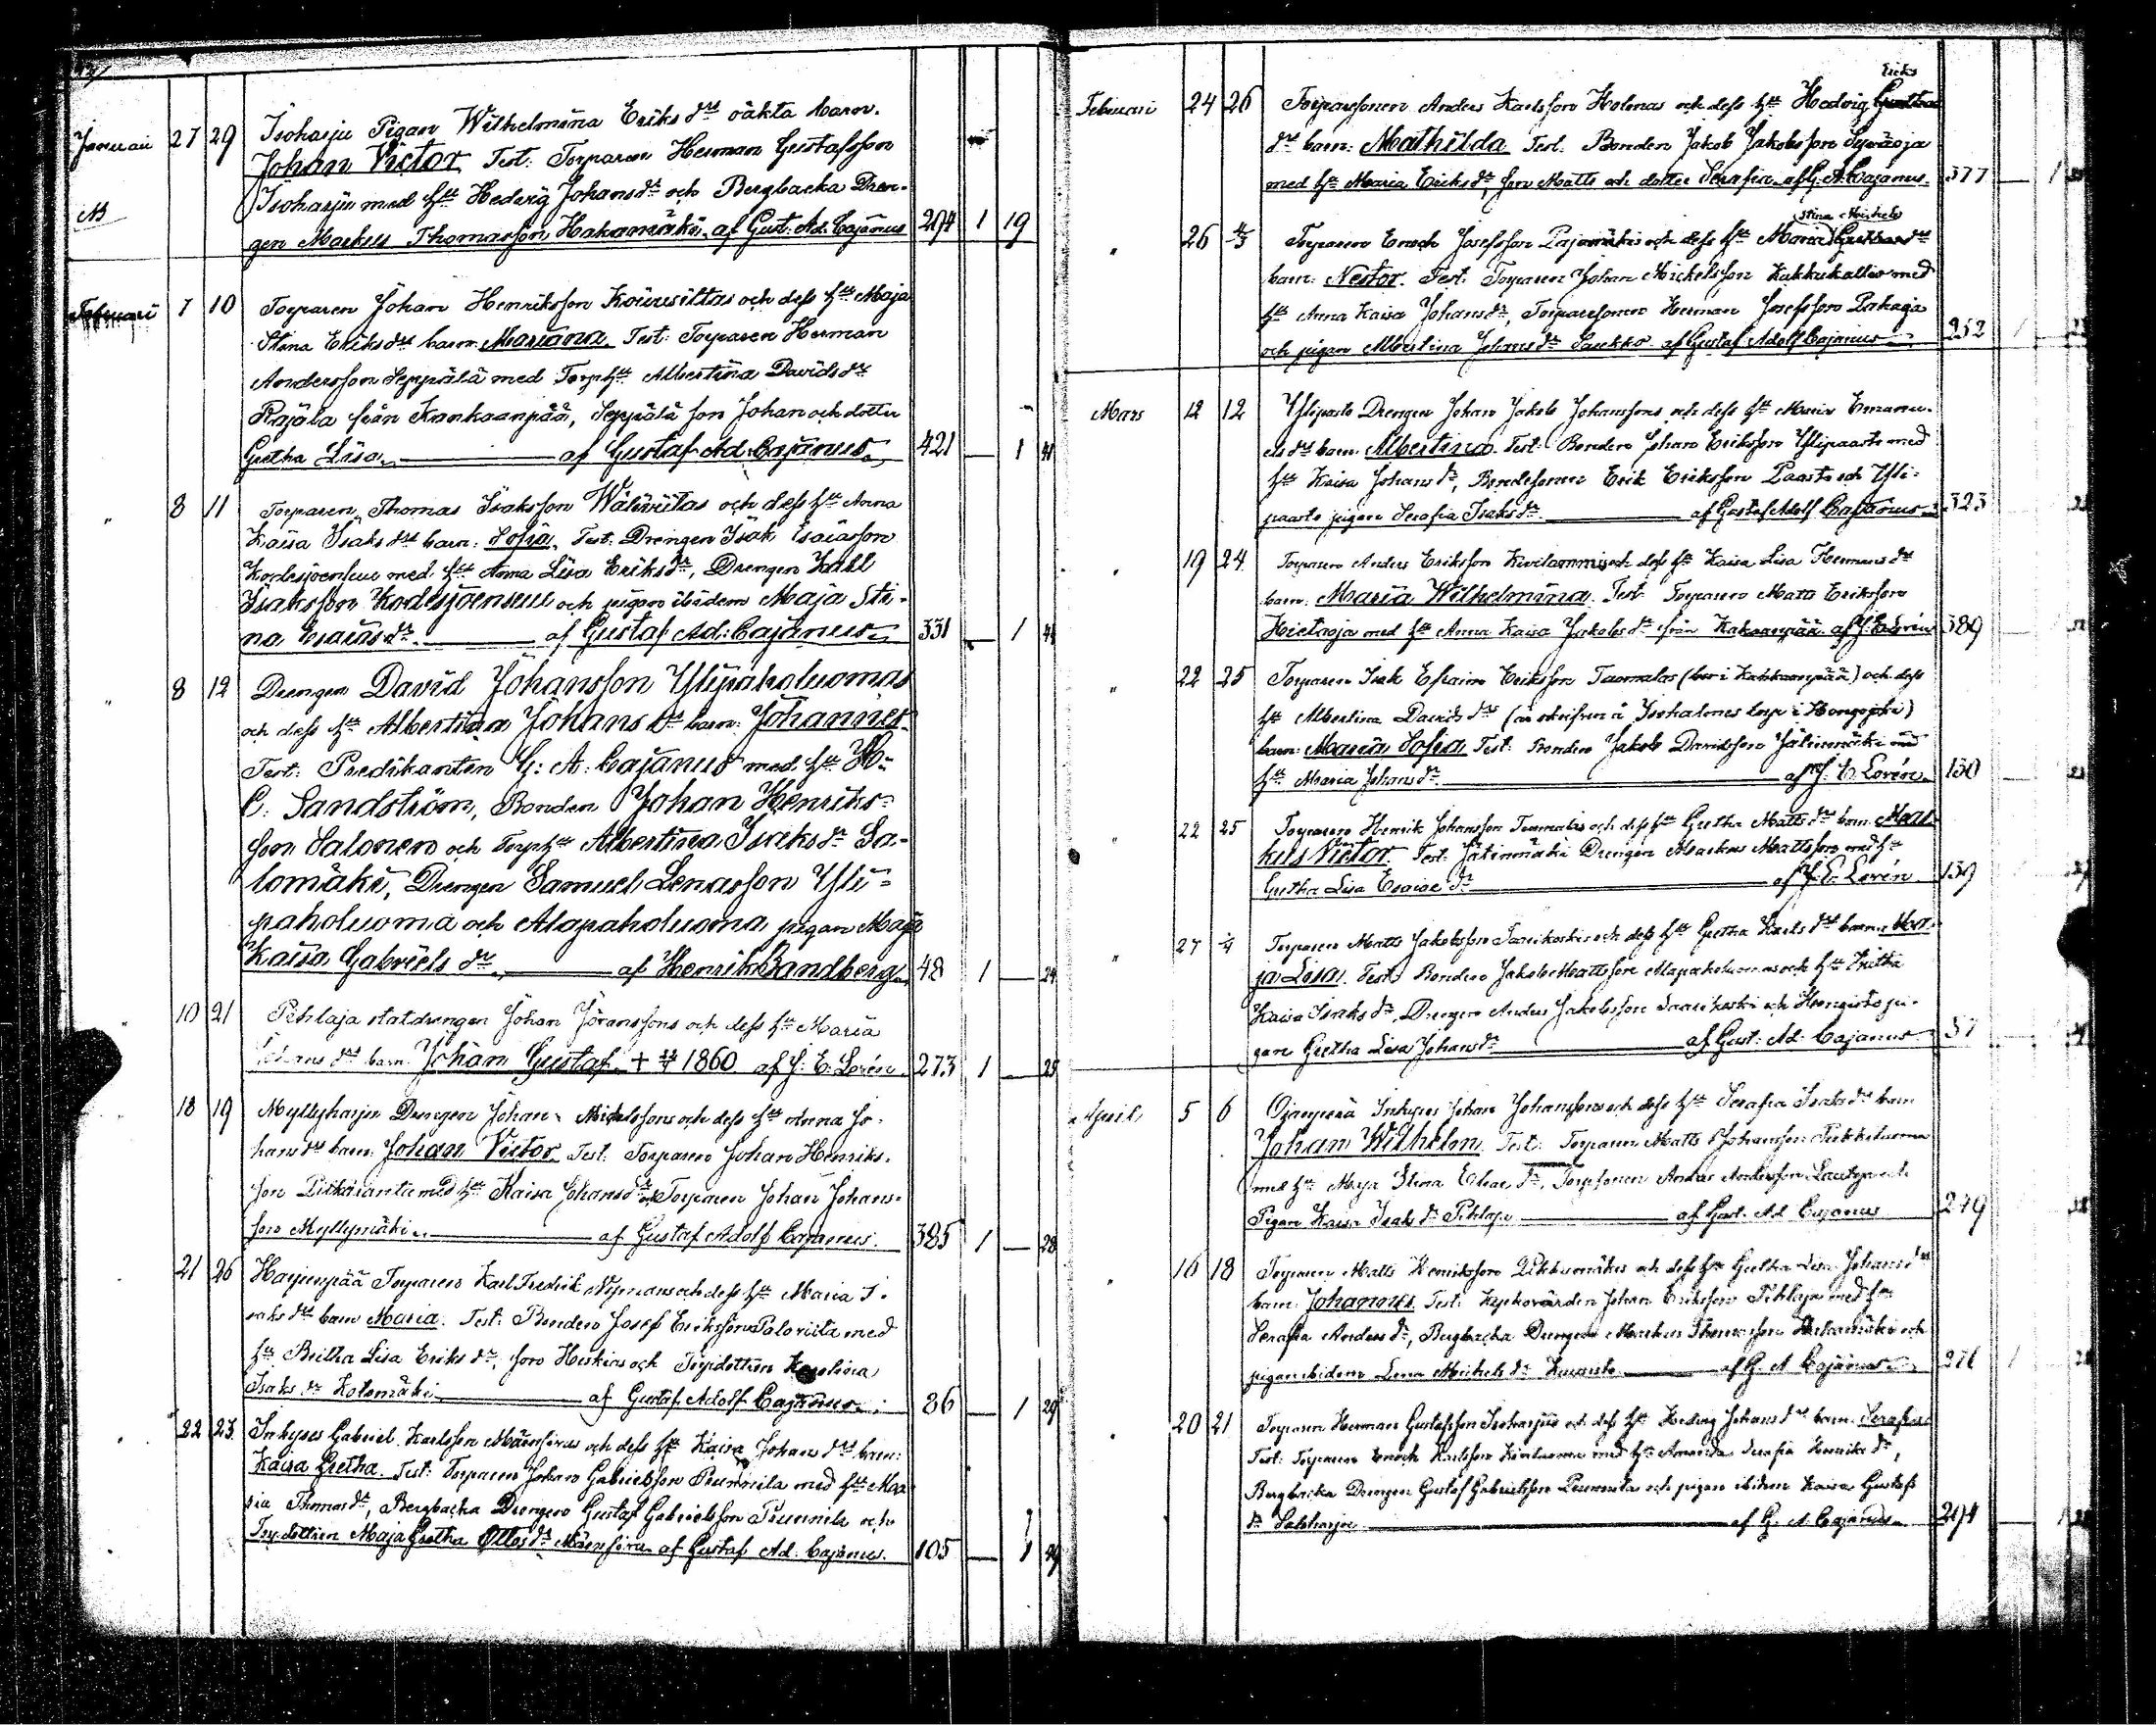 Januari 27 29 Isoharju Pigan Wilhelmina Eriks drs oäkta barn.
Johan Victor. Test: Torparen Herman Gustafsson
Isoharju med hu Hedvig Johans dr och Bergbacka Dren-
gen Markus Thomasson Hakamäki. af Gust: Ad. Cajanus 294 1 19
Februari 7 10 Torparen Johan Henriksson och dess hu Maja
Stina Eriks drs barn: Mariana. Test: Torparen Herman
Andersson Seppälä med Torp hu Albertina Davids dr
Rajala från Kankaanpää, Seppälä son Johan och dotter
Gretha Lisa. af Gustaf Ad. Cajanus. 421 1 41
" 8 11 Torparen Thomas Isaksson och dess hu Anna
Kaisa Isaks drs barn: Sofia. Test: Drengen Isak Esaiasson
med hu Anna Lisa Eriks dr, Drengen Karl
Isaksson och pigan ibidem Maja Sti-
na Esaias dr. af Gustaf Ad: Cajanus 331 1
" 8 12 Drengen David Johansson Ylipaholuomas
och dess hu Albertina Johans drs barn: Johannes.
Test: Predikanten G: A: Cajanus med hu H:
C. Sandström, Bonden Johan Henriks-
son Salonen och Torp hu Albertina Isaks dr Sa-
lomäki, Drengen Samuel Yli-
paholuoma och Alapaholuoma pigan Maja
Kaisa Gabriels dr. af Henrik Sandberg 48 1 24
" 10 21 Pihlaja statdrengen Johan Göranssons och dess hu Maria
drs barn Johan Gustaf. + 1860 af J: E: Lorén 273 1 25
18 19 Myllyharju Drengen Johan Mickelssons och dess hu Anna Jo-
hans drs barn: Johan Victor. Test: Torparen Johan Henriks-
son Pitkäranta med hu Kaisa Johans dr och Torparen Johan Johans-
son Myllymäki. af Gustaf Adolf Cajanus. 385 1 28
21 26 Harjunpää Torparen Karl Fredrik Nymans och dess hu Maria I-
saks drs barn Maria. Test: Bonden Josef Eriksson Paloviita med
hu Britha Lisa Eriks dr, son Heskias och Torpdottren Karolina
Isaks dr Kotomäki af Gustaf Adolf Cajanus. 86 1 29
22 23 Inhyses Gabriel Karlsson och dess hu Kaisa Johans drs barn:
Kaisa Gretha. Test: Torparen Johan Gabrielsson med hu Ma-
ria Thomas dr, Bergbacka Drengen Gustaf Gabrielsson och
Torpdottren Maja Gretha Ottos dr af Gustaf Ad. Cajanus. 105 1
Februari 24 26 Torparesonen Anders Karlsson Holmas och dess hu Hedvig Eriks
drs barn: Mathilda. Test. Bonden Jakob Jakobsson
med hu Maria Eriks dr, son Matts och dotter Serafia. af G. A. Cajanus. 377 1
" 26 Torparen Enoch Josefsson Pajamäkis och dess hu Maria Stina Mickels drs
barn: Nestor. Test: Torparen Johan Mickelsson Kukkukallio med
hu Anna Kaisa Johans dr, Torparesonen Herman Josefsson
och pigan Albertina Johans dr Saukko. af Gustaf Adolf Cajanus 252 1
Mars 12 12 Ylipaasto Drengen Johan Jakob Johanssons och dess hu Maria Emanu-
els drs barn: Albertina. Test. Bonden Johan Eriksson Ylipaasto med
hu Kaisa Johans dr, Bondesonen Erik Eriksson Paasto och Yli-
paasto pigan Serafia Isaks dr af Gustaf Adolf Cajanus. 323
" 19 24 Torparen Anders Eriksson Kivilammis och dess hu Kaisa Lisa Hermans drs
barn: Maria Wilhelmina. Test. Torparen Matts Eriksson
Hietaoja med hu Anna Kaisa Jakobs dr från Kankaanpää. af J. E. Lorén 389
" 22 25 Torparen Isak Efraim Eriksson Tuomalas (bor i Kankaanpää) och dess
hu Albertina Davids drs
barn: Maria Sofia. Test: Bonden Jakob Davidsson Jätinmäki med
hu Maria Johans dr af J. E. Lorén. 130
" 22 25 Torparen Henrik Johansson Tuomalas och dess hu Gretha Matts drs barn Mar-
kus Victor. Test. Jätinmäki Drengen Markus Mattsson med hu
Gretha Lisa Esaiae dr af J. E. Lorén. 139
" 27 Torparen Matts Jakobsson och dess hu Gretha Karls drs barn: Ma-
ja Lisa. Test: Bonden Jakob Mattsson Alapaholuomas och hu
Kaisa Isaks dr, Drengen Anders Jakobsson och Hongisto pi-
gan Gretha Lisa Johans dr af Gust: Ad: Cajanus 37
April 5 6 Ojanperä Inhyses Johan Johanssons och dess hu Serafia Isaks drs barn
Johan Wilhelm. Test: Torparen Matts Johansson
med hu Maja Stina dr, Torpsonen Anders Andersson och
Pigan Kaisa Isaks dr Pihlaja af Gust. Ad. Cajanus 249
" 16 18 Torparen Matts Henriksson Pikkumäkis och dess hu Gretha Lisa Johans drs
barn: Johannes. Test: Kyrkovärden Johan Eriksson Pihlaja med hu
Serafia Anders dr, Bergbacka Drengen Markus Thomasson Hakamäki och
pigan ibidem Lena Mickels dr af G. A. Cajanus 276 1
" 20 21 Torparen Herman Gustafsson Isoharjus och dess hu Hedvig Johans drs barn: Serafia.
Test: Torparen Enoch Karlsson med hu Amanda Serafia Henriks dr,
Bergbacka Drengen Gustaf Gabrielsson och pigan ibidem Kaisa Gustafs
dr af G. A. Cajanus. 294